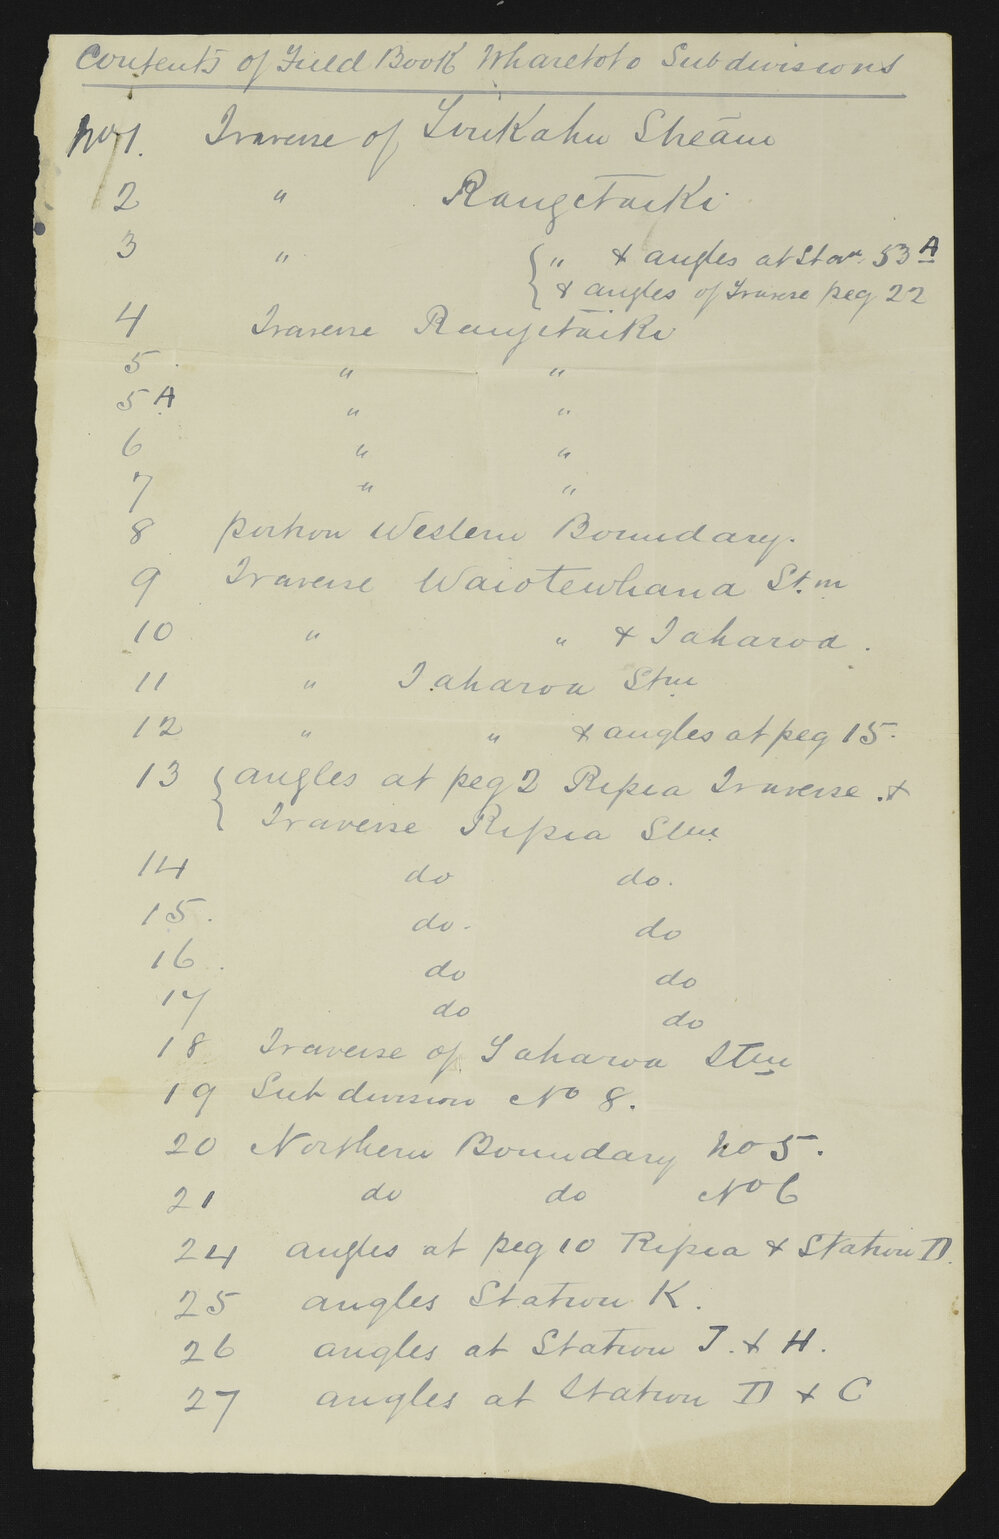 Contents of Field Book Wharetoto Subdivisions
No 1. Traverse of Tirikahu Stream
2 " Rangitaiki
3 " { " & angles at Statn. 53A
& angles of Traverse peg 22
4 Traverse Rangitaiki
5. " "
5A " "
6 " "
7 " "
8 portion Western Boundary.
9 Traverse Waiotewhana St.m
10 " " & Taharoa.
11 " Taharoa Stm
12 " " & angles at peg 15.
13 { angles at peg 2 Ripia Traverse. &
Traverse Ripia Stm
14 do do.
15. do. do
16. do do
17 do do
18 Traverse of Taharoa Stm
19 Subdivision No 8.
20 Northern Boundary No 5.
21 do do No 6
24 angles at peg 10 Ripia & Station D.
25 angles Station K.
26 angles at Station J. & H.
27 angles at Station D & C